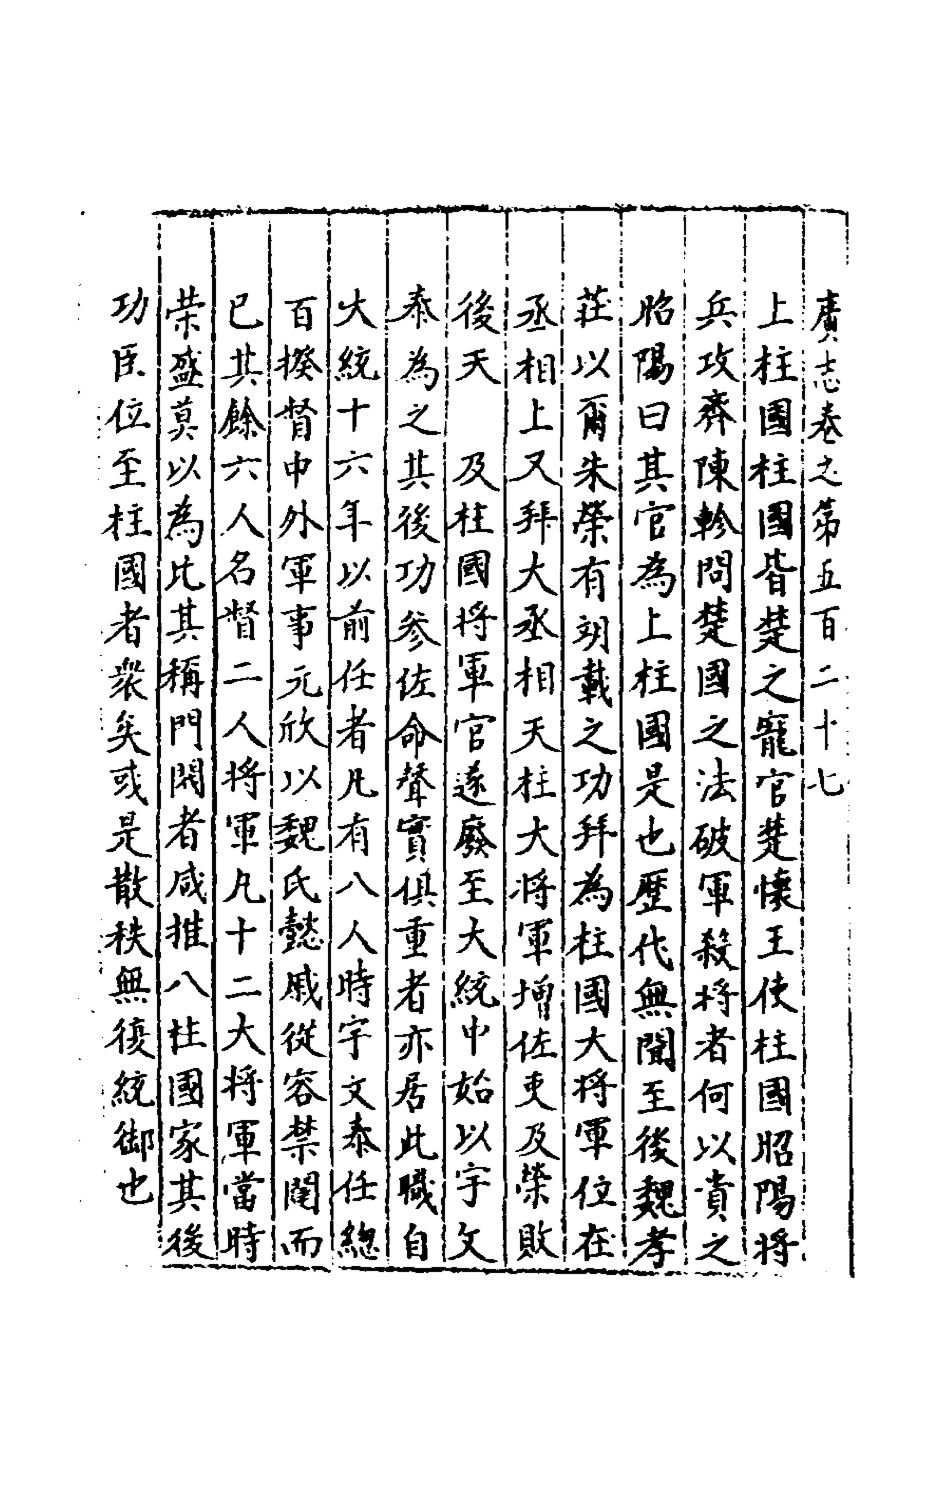 廣志卷之第五百二十七
上柱國柱國皆楚之寵官楚懷王使柱國昭陽將
兵攻齊陳軫問楚國之法破軍殺將者何以貴之
昭陽曰其官為上柱國是也歷代無聞至後魏孝
莊以爾朱榮有翊載之功拜為柱國大將軍位在
丞相上又拜大丞相天柱大將軍增佐吏及榮敗
後天 及柱國將軍官遂廢至大統中始以宇文
泰為之其後功參佐命聲實俱重者亦居此職自
大統十六年以前任者凡有八人時宇文泰任總
百揆督中外軍事元欣以魏氏懿戚從容禁闈而
已其餘六人名督二人將軍凡十二大將軍當時
榮盛莫以為比其稱門閥者咸推八柱國家其後
功臣位至柱國者衆矣或是散秩無復統御也